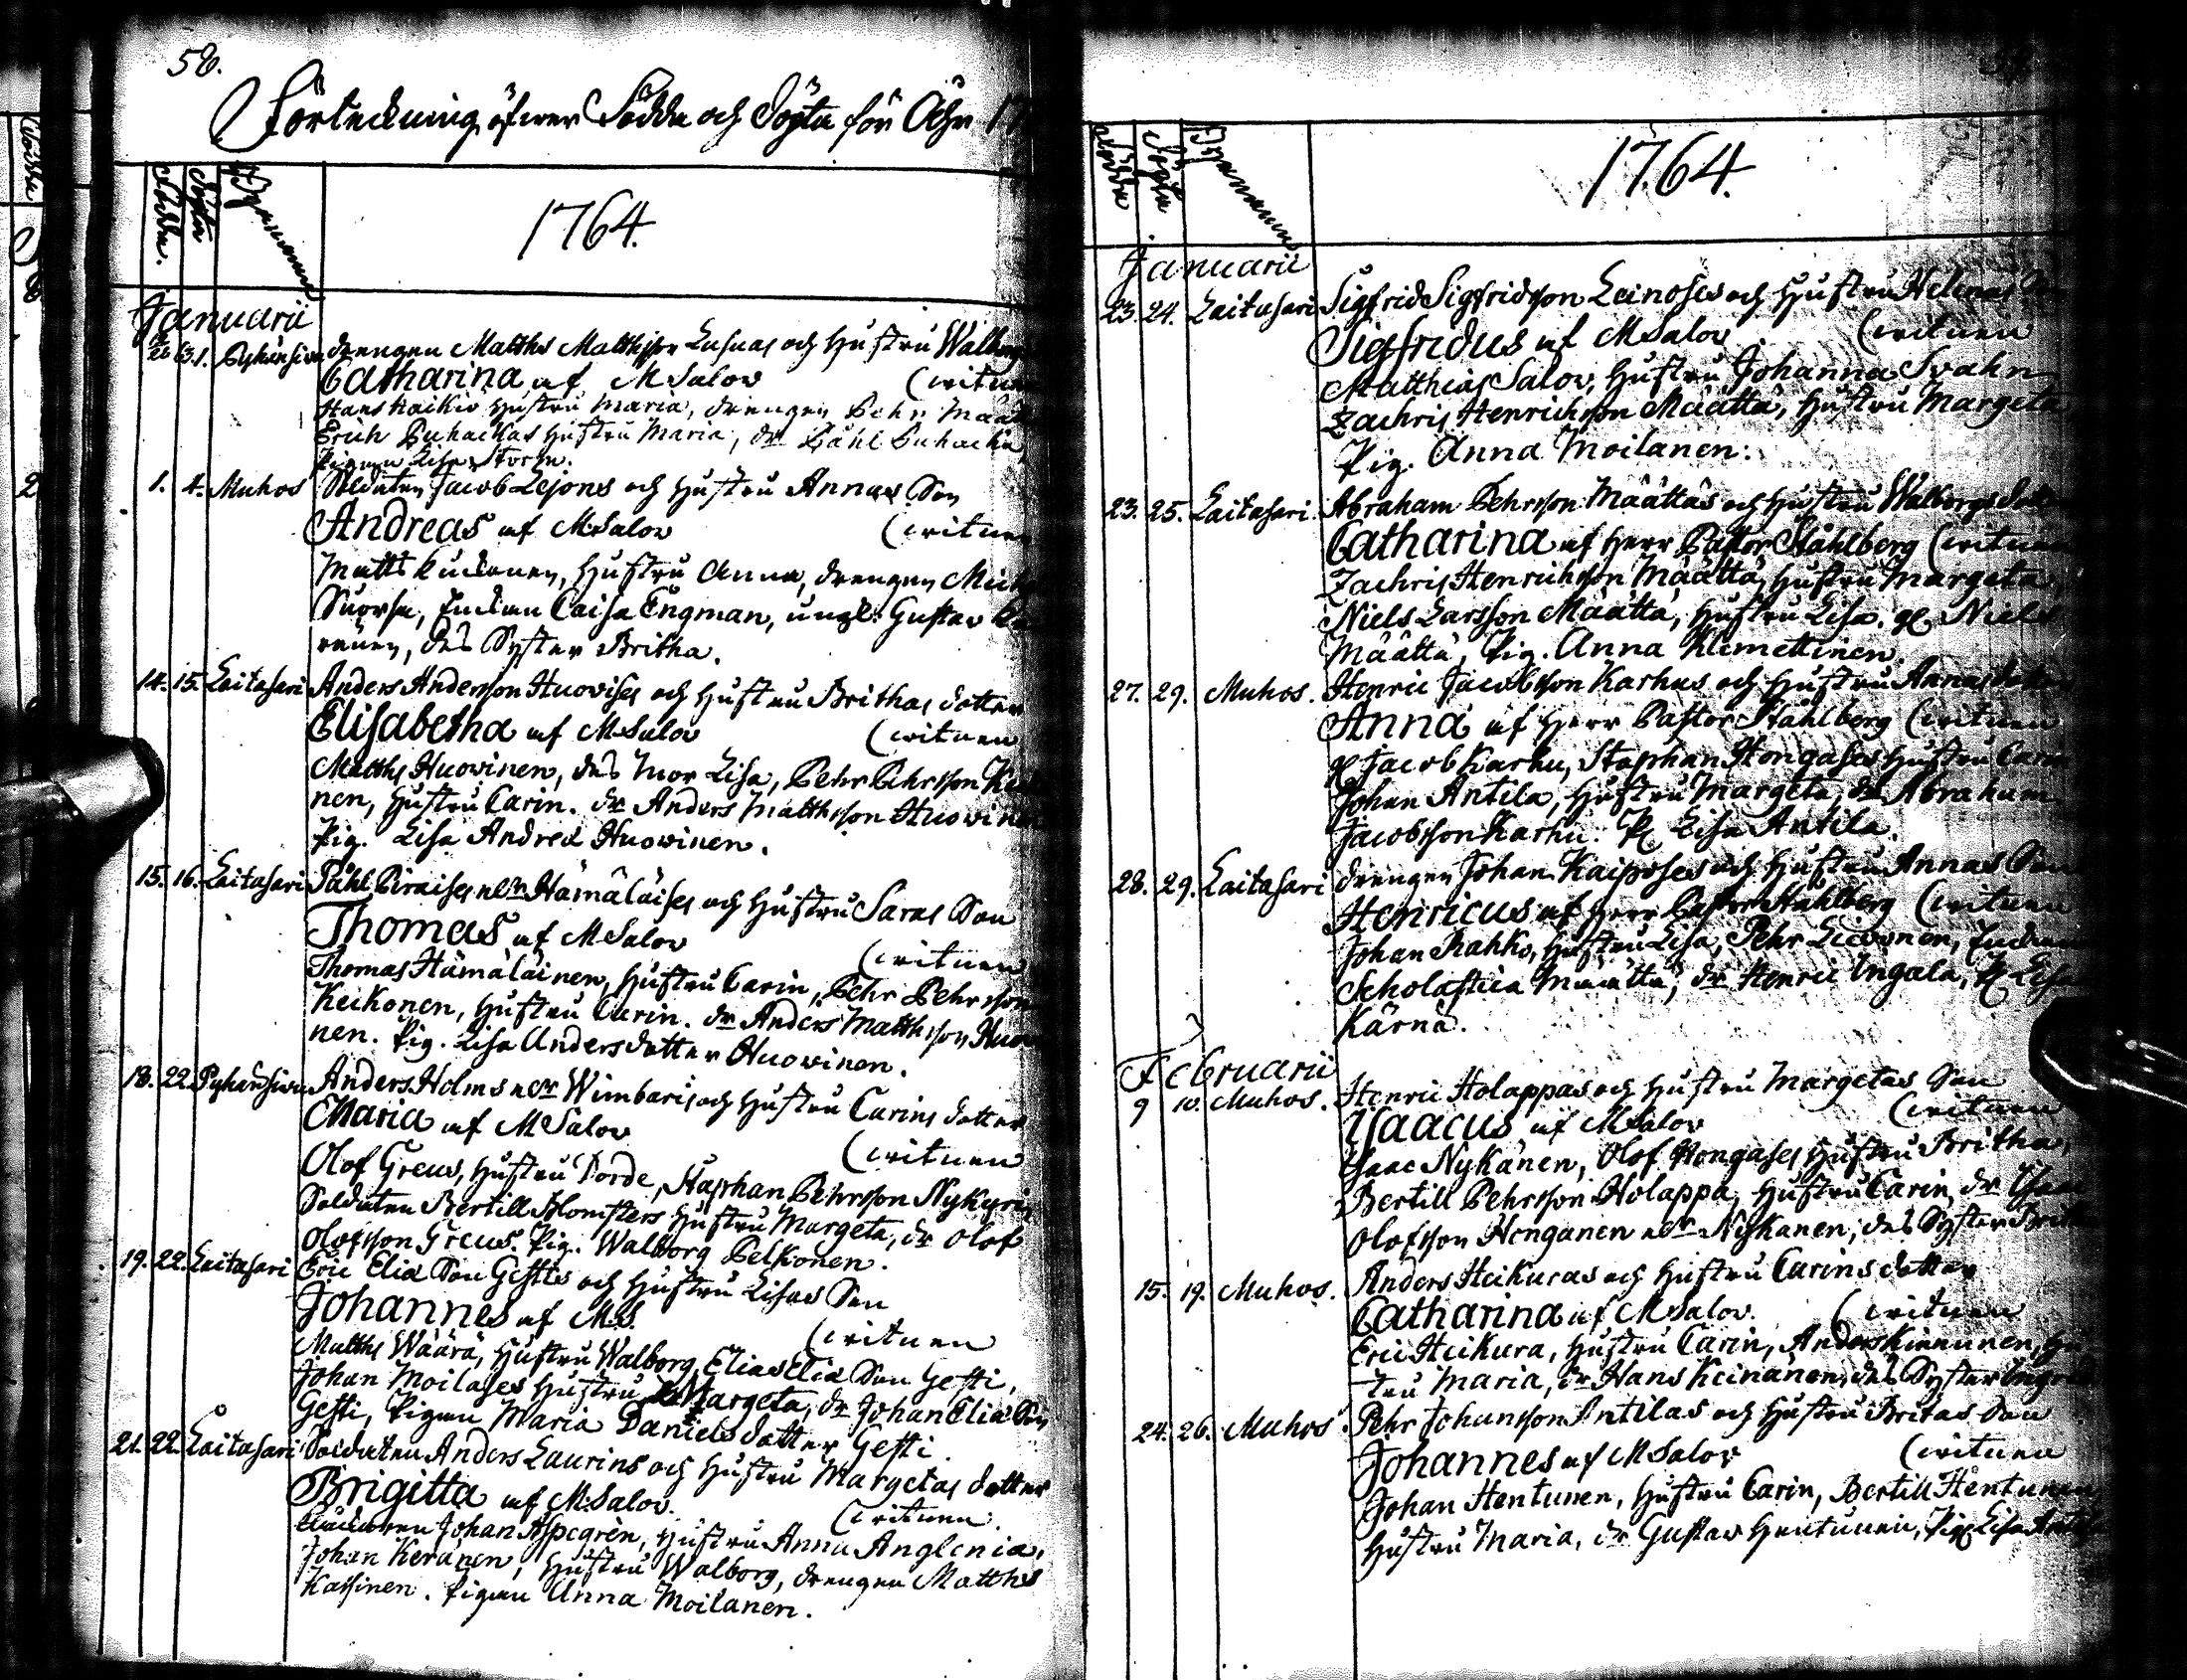 58.
Förteckning öfwer Födde och Döpta för Åhr 17
Födde. Döpta Byanamn
1764.
Januarii
1. Pyhänsivu drengen Matths Matthsson Lusuas och Hustru Walborgs
Catharina af M Salov (wittnen
Hans Kaikio Hustru Maria, drengen Pehr Määt
Erich Puhackas Hustru Maria, dr Påhl Puhacka
Pigan Lisa Storm.
1. 4. Muhos Soldaten Jacob Lejons och Hustru Annas Son
Andreas af M Salov (wittnen
Matts Kuckonen, Hustru Anna, drengen Mich
Suorsa, Enckan Caisa Engman, ungk. Gustav
nen, des Syster Britha.
14. 15. Laitasari Anders Andersson Huovises och Hustru Brithas dotter
Elisabetha af M Salov (wittnen
Matths Huovinen, des Mor Lisa, Pehr Pehrsson Kei
nen, Hustru Carin. dr Anders Matthsson Huovinen
Pig. Lisa Andred Huovinen.
15. 16. Laitasari Påhl Piraises ellr Hämäläises och Hustru Saras Son
Thomas af M Salov (wittnen
Thomas Hämäläinen, Hustru Carin, Pehr Pehrsson
Keikonen, Hustru Carin. dr Anders Matthsson Huovi
nen. Pig. Lisa Andersdotter Huovinen.
18. 22. Pyhänsivu Anders Holms ellr Wimbaris och Hustru Carins dotter
Maria af M Salov (wittnen
Olof Greus, Hustru Dorde, Staphan Pehrsson Nykyri
Soldaten Bertill Blomsters Hustru Margeta, dr Olof
Olofsson Greus. Pig. Walborg Pelkonen.
19. 22. Laitasari Eric Elia Son Gestis och Hustru Lisas Son
Johannes af M.S. (wittnen
Matths Wäärä, Hustru Walborg, Elias Elia Son Gesti,
Johan Moilases Hustru Margeta, dr Johan Elia Son
Gesti, Pigan Maria Danielsdotter Gesti
21. 22. Laitasari Soldaten Anders Laurins och Hustru Margetas dotter
Brigitta af M Salov. (wittnen.
Johan Aspegrèn, Hustru Anna Anglenia,
Johan Keränen, Hustru Walborg, drengen Matths
Kassinen. Pigan Anna Moilanen.
Födde Döpta Byanamn
1764.
Januarii
23. 24. Laitasari Sigfrid Sigfridsson Leinoses och Hustru Helenas
Sigfridus af M Salov (wittnen
Matthias Salov, Hustru Johanna Svahn
Zachris Henrichsson Määttä, Hustru Margeta,
Pig. Anna Moilanen:
23. 25. Laitasari Abraham Pehrsson Määttäs och Hustru Walborgs dotter
Catharina af Herr Pastor Ståhlberg (wittnen
Zachris Henrichsson Määttä, Hustru Margeta,
Niels Larsson Määttä, Hustru Lisa. Niels
Määttä, Pig. Anna Klemettinen.
27. 29. Muhos. Henric Jacobsson Karhus och Hustru Annas dotter
Anna af Herr Pastor Ståhlberg (wittnen
Jacob Karhu, Staphan Hongases Hustru Carin
Johan Antila, Hustru Margeta, dr Abraham
Jacobsson Karhu. Pig Lisa Antila.
28. 29. Laitasari drengen Johan Kaiposes och Hustru Annas Son
Henricus af Herr Pastor Ståhlberg (wittnen
Johan Rahko, Hustru Lisa, Pehr Liedonen, Enckan
Scholastica Määttä, dr Henric Ungala, Lisa
Kärnä.
Februarii
9 10. Muhos. Henric Holappas och Hustru Margetas Son
Isaacus af M Salov (wittnen
Isaac Nykänen, Olof Hongases Hustru Britha,
Bertill Pehrsson Holappa, Hustru Carin, dr Isaac
Olofsson Honganen ellr Nykänen, des Syster Britha
15. 19. Muhos. Anders Heikuras och Hustru Carins dotter
Catharina af M Salov. (wittnen
Eric Heikura, Hustru Carin, Anders Kinnunen, Hu
stru Maria, dr Hans Keinänen, des Syster Ingrid
24. 26. Muhos Pehr Johansson Antilas och Hustru Britas Son
Johannes af M Salov (wittnen
Johan Hentunen, Hustru Carin, Bertill Hentunen
Hustru Maria, dr Gustav Hentunen, Pig Lisa Antila